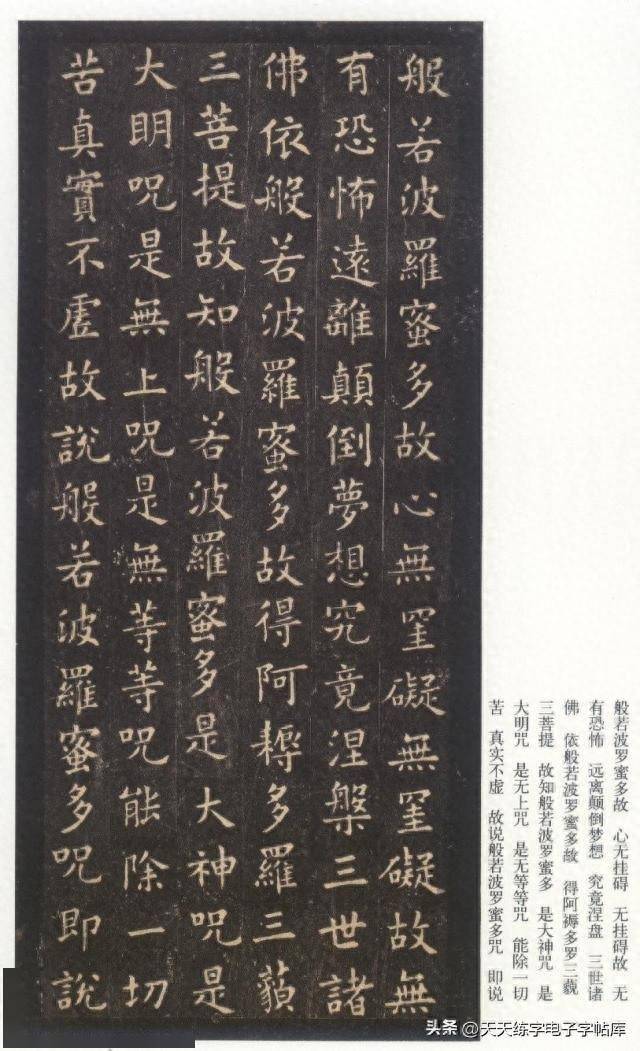 般若波羅蜜多故心無罣礙無罣礙故無
有恐怖遠離顛倒夢想究竟涅槃三世諸
佛依般若波羅蜜多故得阿耨多羅三藐
三菩提故知般若波羅蜜多是大神咒是
大明咒是無上咒是無等等咒能除一切
苦真實不虛故說般若波羅蜜多咒即說
般若波罗蜜多故 心无挂碍 无挂碍故 无
有恐怖 远离颠倒梦想 究竟涅盘 三世诸
佛 依般若波罗蜜多故 得阿褥多罗三藐
三菩提 故知般若波罗蜜多 是大神咒 是
大明咒 是无上咒 是无等等咒 能除一切
苦 真实不虚 故说般若波罗蜜多咒 即说
头条 @天天练字电子字帖库